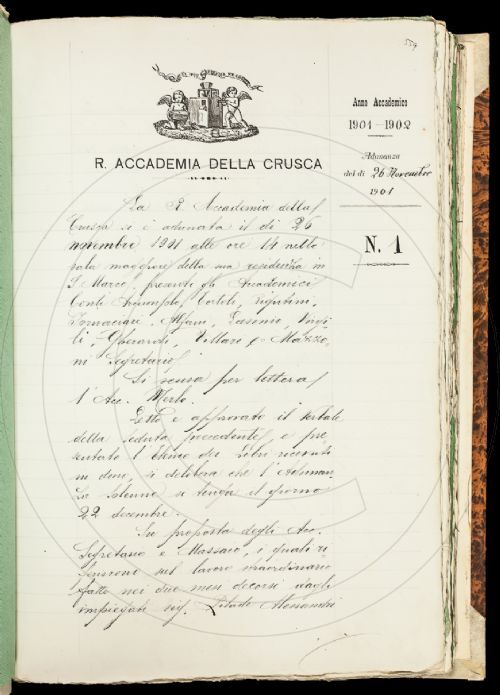 559
IL PIÙ BEL FIOR NE COGLIE
R. ACCADEMIA DELLA CRUSCA
Anno Accademico
1901-1902
Adunanza
del dì 26 Novembre
1901
N. 1
La R. Accademia della
Crusca si è adunata il dì 26
novembre 1901 alle ore 14 nella
sala maggiore della sua residenza in
S. Marco, presenti gli Accademici
Conti, Tortoli, Rigutini,
Fornaciari, Alfani, Pasini,
Gherardi, Villari e Mazzo-
ni Segretario
Si scusa per lettera
l'Acc. Merlo.
Letto e approvato il verbale
della seduta precedente, e pre-
sentato l'Elenco dei Libri ricevuti
in dono, si delibera che l'Adunan-
za Solenne si tenga il giorno
22 decembre.
Su proposta degli Acc.
Segretario e Massaio, i quali ri-
feriscono sul lavoro straordinario
fatto nei due mesi decorsi dagli
impiegati sigg. Alessandri